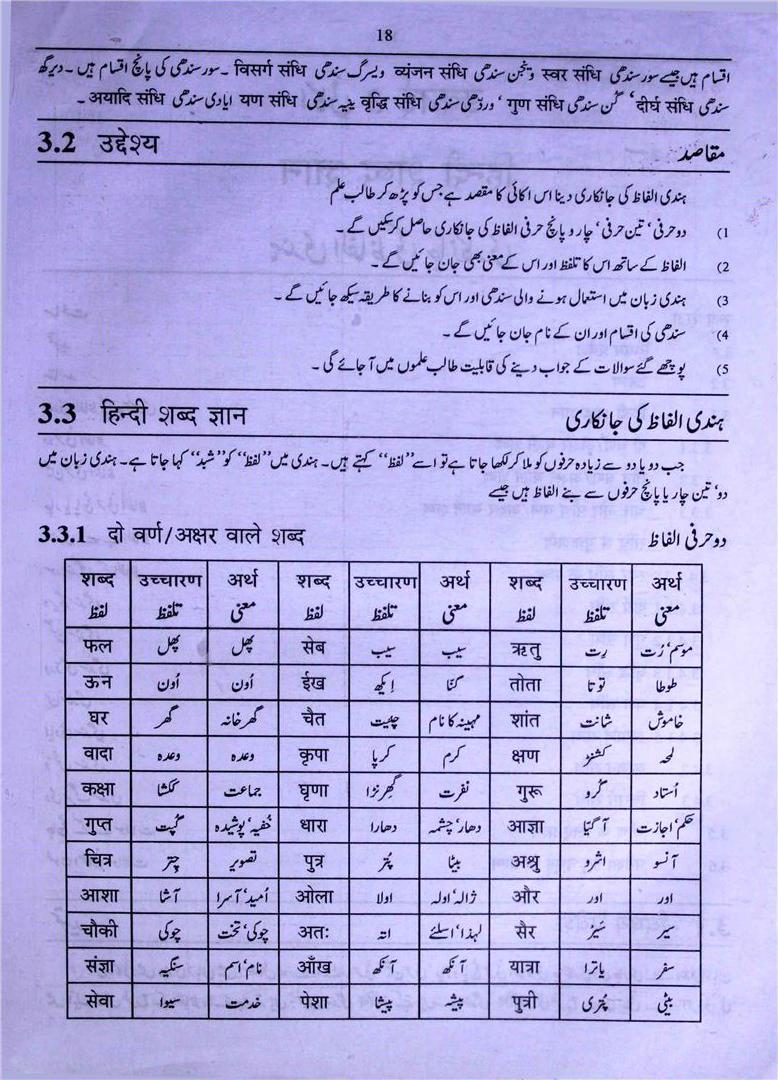 18
اقسام ہیں جیسے سور سندھی स्वर संधि ویَنجن سندھی व्यंजन संधि ویسرگ سندھی विसर्ग संधि ۔ سور سندھی کی پانچ اقسام ہیں ۔ دیرگھ
سندھی दीर्घ संधि‘ گُن سندھی गुण संधि‘ وردّھی سندھی वृद्धि संधि ینیہ سندھی यण संधि ایادی سندھی अयादि संधि ۔
3.2 उद्देश्य مقاصد
ہندی الفاظ کی جانکاری دینا اس اکائی کا مقصد ہے جس کو پڑھ کر طالب علم
1) دو حرفی‘ تین حرفی‘ چار و پانچ حرفی الفاظ کی جانکاری حاصل کر سکیں گے ۔
2) الفاظ کے ساتھ اس کا تلفظ اور اس کے معنی بھی جان جائیں گے ۔
3) ہندی زبان میں استعمال ہونے والی سندھی اور اس کو بنانے کا طریقہ سیکھ جائیں گے ۔
4) سندھی کی اقسام اور ان کے نام جان جائیں گے ۔
5) پوچھے گئے سوالات کے جواب دینے کی قابلیت طالب علموں میں آ جائے گی ۔
3.3 हिन्दी शब्द ज्ञान ہندی الفاظ کی جانکاری
جب دو یا دو سے زیادہ حرفوں کو ملا کر لکھا جاتا ہے تو اسے ’’لفظ‘‘ کہتے ہیں۔ ہندی میں ’’لفظ‘‘ کو ’’شبد‘‘ کہا جاتا ہے۔ ہندی زبان میں
دو‘ تین چار یا پانچ حرفوں سے بنے الفاظ ہیں جیسے
3.3.1 दो वर्ण/अक्षर वाले शब्द دو حرفی الفاظ
शब्द उच्चारण अर्थ शब्द उच्चारण अर्थ शब्द उच्चारण अर्थ
لفظ تلفظ معنی لفظ تلفظ معنی لفظ تلفظ معنی
फल پھل پھل सेब سیب سیب ऋतु رِت موسم‘ رُت
ऊन اُون اُون ईख اِیکھ گنّا तोता توتا طوطا
घर گھر گھر خانہ चैत چیت مہینہ کا نام शांत شانت خاموش
वादा وعدہ وعدہ कृपा کرپا کرم क्षण کشنڑ لمحہ
कक्षा ککشا جماعت घृणा گھِرنڑا نفرت गुरू گُرو اُستاد
गुप्त گُپت خُفیہ‘ پوشیدہ धारा دھارا دھار‘ چشمہ आज्ञा آگیا حکم‘ اجازت
चित्र چِتر تصویر पुत्र پُتر بیٹا अश्रु اشرو آنسو
आशा آشا اُمید‘ آسرا ओला اولا ژالہ‘ اولہ और اور اور
चौकी چوکی چوکی‘ تخت अतः اتہ لہذا‘ اسلئے सैर سَیر سیر
संज्ञा سنگیہ نام‘ اسم आँख آنکھ آنکھ यात्रा یاترا سفر
सेवा سیوا خدمت पेशा پیشا پیشہ पुत्री پُتری بیٹی